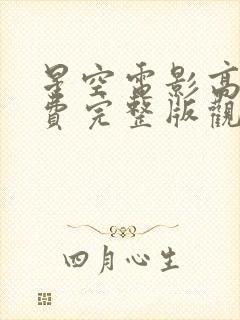 星空電影高
費完整版觀
四月心生